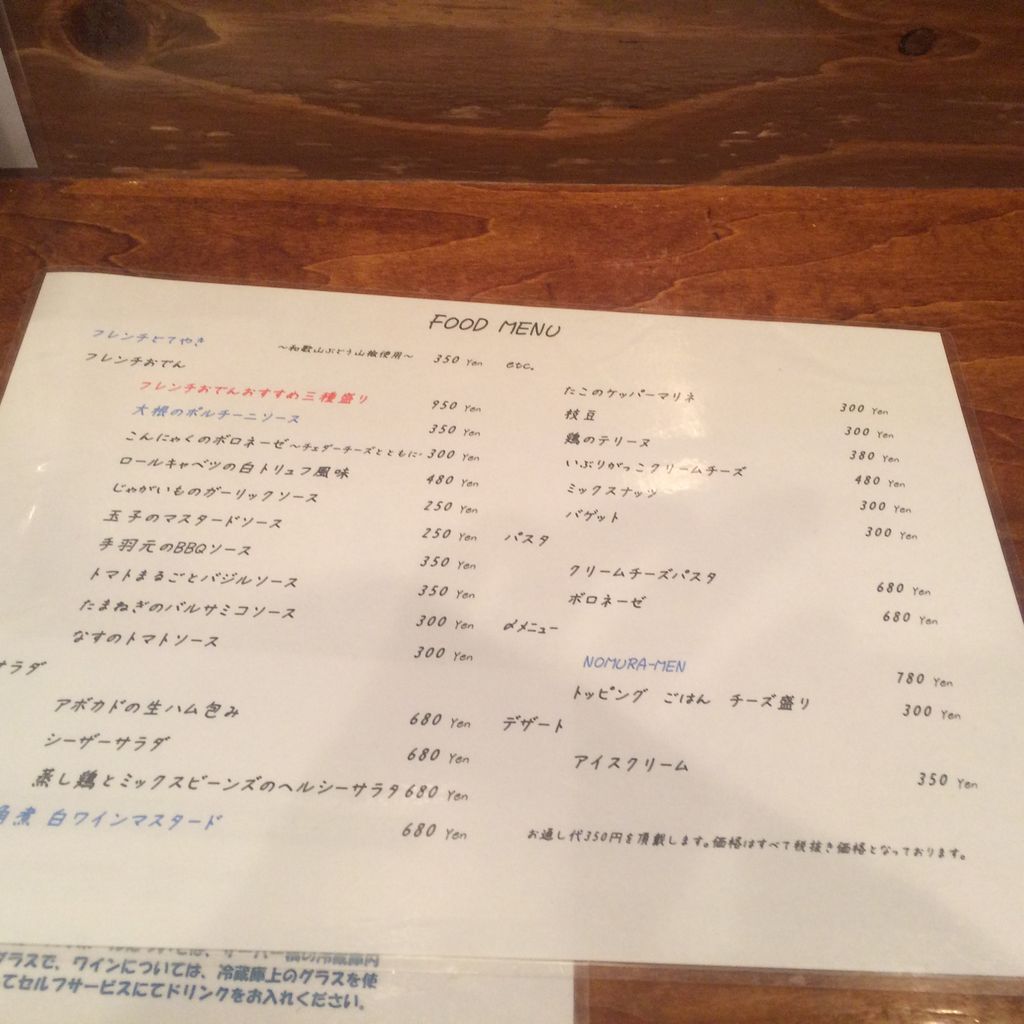 FOOD MENU
フレンチどてやき ～和歌山ぶどう山椒使用～ 350 Yen
フレンチおでん
フレンチおでんおすすめ三種盛り 950 Yen
大根のポルチーニソース 350 Yen
こんにゃくのボロネーゼ～チェダーチーズとともに～ 300 Yen
ロールキャベツの白トリュフ風味 480 Yen
じゃがいものガーリックソース 250 Yen
玉子のマスタードソース 250 Yen
手羽元のBBQソース 350 Yen
トマトまるごとバジルソース 350 Yen
たまねぎのバルサミコソース 300 Yen
なすのトマトソース 300 Yen
サラダ
アボカドの生ハム包み 680 Yen
シーザーサラダ 680 Yen
蒸し鶏とミックスビーンズのヘルシーサラダ 680 Yen
角煮 白ワインマスタード 680 Yen
etc.
たこのケッパーマリネ 300 Yen
枝豆 300 Yen
鶏のテリーヌ 380 Yen
いぶりがっこクリームチーズ 480 Yen
ミックスナッツ 300 Yen
バゲット 300 Yen
パスタ
クリームチーズパスタ 680 Yen
ボロネーゼ 680 Yen
〆メニュー
NOMURA-MEN 780 Yen
トッピング ごはん チーズ盛り 300 Yen
デザート
アイスクリーム 350 Yen
お通し代350円を頂戴します。価格はすべて税抜き価格となっております。
グラスで、ワインについては、冷蔵庫上のグラスを使
てセルフサービスにてドリンクをお入れください。